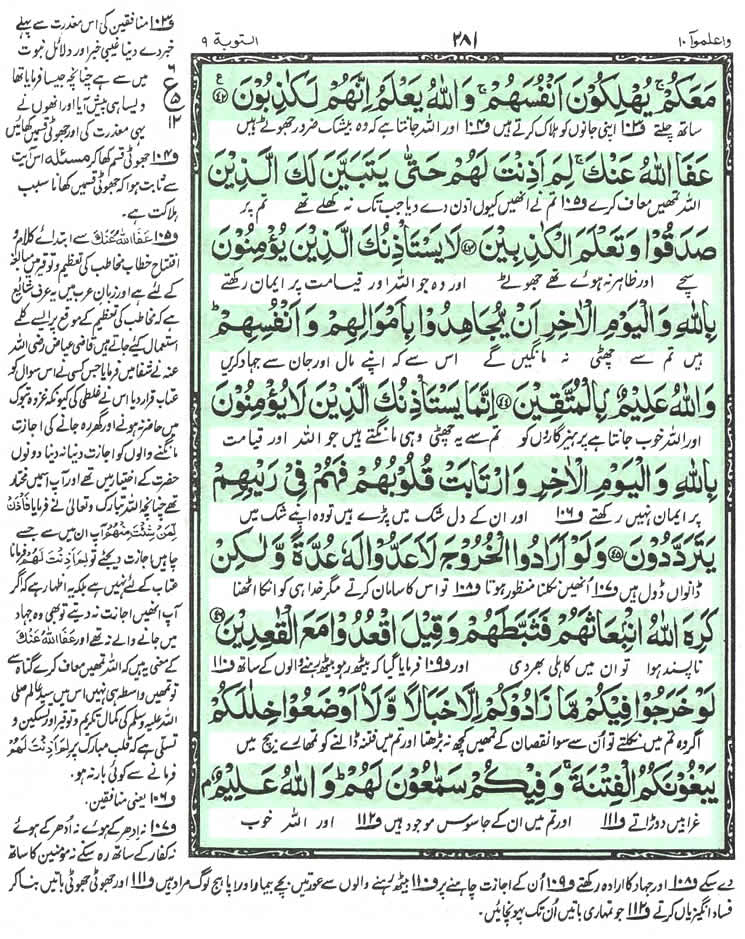 واعلموا ١٠
٢٨١
التوبة ٩
مَعَكُمْ ۚ يُهْلِكُوْنَ اَنْفُسَهُمْ ۚ وَاللّٰهُ يَعْلَمُ اِنَّهُمْ لَكٰذِبُوْنَ ﴿۴۲﴾
ساتھ چلتے و۱۰۳ اپنی جانوں کو ہلاک کرتے ہیں و۱۰۴ اور اللہ جانتا ہے کہ وہ بیشک ضرور جھوٹے ہیں
عَفَا اللّٰهُ عَنْكَ ۚ لِمَ اَذِنْتَ لَهُمْ حَتّٰى يَتَبَيَّنَ لَكَ الَّذِيْنَ
اللہ تمھیں معاف کرے و۱۰۵ تم نے انھیں کیوں اذن دے دیا جب تک نہ کھلے تھے تم پر
صَدَقُوْا وَتَعْلَمَ الْكٰذِبِيْنَ ﴿۴۳﴾ لَا يَسْتَاْذِنُكَ الَّذِيْنَ يُؤْمِنُوْنَ
سچے اور ظاہر نہ ہوئے تھے جھوٹے اور وہ جو اللہ اور قیامت پر ایمان رکھتے
بِاللّٰهِ وَالْيَوْمِ الْاٰخِرِ اَنْ يُّجَاهِدُوْا بِاَمْوَالِهِمْ وَاَنْفُسِهِمْ ؕ
ہیں تم سے چھٹی نہ مانگیں گے اس سے کہ اپنے مال اور جان سے جہاد کریں
وَاللّٰهُ عَلِيْمٌۢ بِالْمُتَّقِيْنَ ﴿۴۴﴾ اِنَّمَا يَسْتَاْذِنُكَ الَّذِيْنَ لَا يُؤْمِنُوْنَ
اور اللہ خوب جانتا ہے پرہیزگاروں کو تم سے یہ چھٹی وہی مانگتے ہیں جو اللہ اور قیامت
بِاللّٰهِ وَالْيَوْمِ الْاٰخِرِ وَارْتَابَتْ قُلُوْبُهُمْ فَهُمْ فِيْ رَيْبِهِمْ
پر ایمان نہیں رکھتے و۱۰۶ اور ان کے دل شک میں پڑے ہیں تو وہ اپنے شک میں
يَتَرَدَّدُوْنَ ﴿۴۵﴾ وَلَوْ اَرَادُوا الْخُرُوْجَ لَاَعَدُّوْا لَهٗ عُدَّةً وَّلٰكِنْ
ڈانواں ڈول ہیں و۱۰۷ انھیں نکلنا منظور ہوتا و۱۰۸ تو اس کا سامان کرتے مگر خدا ہی کو انکا اٹھنا
كَرِهَ اللّٰهُ انْۢبِعَاثَهُمْ فَثَبَّطَهُمْ وَقِيْلَ اقْعُدُوْا مَعَ الْقٰعِدِيْنَ ﴿۴۶﴾
ناپسند ہوا تو ان میں کاہلی بھر دی اور و۱۰۹ فرمایا گیا کہ بیٹھ رہو بیٹھ رہنے والوں کے ساتھ و۱۱۰
لَوْ خَرَجُوْا فِيْكُمْ مَّا زَادُوْكُمْ اِلَّا خَبَالًا وَّلَا۟اَوْضَعُوْا خِلٰلَكُمْ
اگر وہ تم میں نکلتے تو ان سے سوا نقصان کے تمھیں کچھ نہ بڑھتا اور تم میں فتنہ ڈالنے کو تمھارے بیچ میں
يَبْغُوْنَكُمُ الْفِتْنَةَ ۚ وَفِيْكُمْ سَمّٰعُوْنَ لَهُمْ ؕ وَاللّٰهُ عَلِيْمٌۢ
غرابیں دوڑاتے و۱۱۱ اور تم میں ان کے جاسوس موجود ہیں و۱۱۲ اور اللہ خوب
و۱۰۳ منافقین کی اس معذرت سے پہلے
خبر دے دینا غیبی خبر اور دلائل نبوت
میں سے ہے چنانچہ جیسا فرمایا تھا
ویسا ہی پیش آیا اور انھوں نے
یہی معذرت کی اور جھوٹی قسمیں کھائیں
و۱۰۴ جھوٹی قسم کھا کر مسئلہ اس آیت
سے ثابت ہوا کہ جھوٹی قسمیں کھانا سبب
ہلاکت ہے۔
و۱۰۵ عَفَا اللّٰهُ عَنْكَ سے ابتدائے کلام و
افتتاح خطاب مخاطب کی تعظیم و توقیر میں مبالغہ
کے لئے ہے اور زبان عرب میں یہ عرف شائع
ہے کہ مخاطب کی تعظیم کے موقع پر ایسے کلمے
استعمال کئے جاتے ہیں قاضی عیاض رضی اللہ
عنہ نے شفا میں فرمایا جس کسی نے اس سوال کو
عتاب قرار دیا اس نے غلطی کی کیونکہ غزوہ تبوک
میں حاضر نہ ہونے اور گھر رہ جانے کی اجازت
مانگنے والوں کو اجازت دینا نہ دینا دونوں
حضرت کے اختیار میں تھے اور آپ اس میں مختار
تھے چنانچہ اللہ تبارک وتعالیٰ نے فرمایا فَأْذَنْ
لِّمَنْ شِئْتَ مِنْهُمْ آپ ان میں سے جسے
چاہیں اجازت دیجئے تو لِمَ اَذِنْتَ لَهُمْ فرمانا
عتاب کے لئے نہیں ہے بلکہ یہ اظہار ہے کہ اگر
آپ انھیں اجازت نہ دیتے تو بھی وہ جہاد
میں جانے والے نہ تھے اور عَفَا اللّٰهُ عَنْكَ
کے معنی یہ ہیں کہ اللہ تمھیں معاف کرے گناہ سے
تو تمھیں واسطہ ہی نہیں اس میں سید عالم صلی
اللہ علیہ وسلم کی کمال تکریم و توقیر اور تسکین و
تسلی ہے کہ قلب مبارک پر لِمَ اَذِنْتَ لَهُمْ
فرمانے سے کوئی بار نہ ہو۔
و۱۰۶ یعنی منافقین۔
و۱۰۷ نہ ادھر کے ہوئے نہ ادھر کے ہوئے
نہ کفار کے ساتھ رہ سکے نہ مؤمنین کا ساتھ
دے سکے و۱۰۸ اور جہاد کا ارادہ رکھتے و۱۰۹ اُن کے اجازت چاہنے پر و۱۱۰ بیٹھ رہنے والوں سے عورتیں بچے بیمار اور اپاہج لوگ مراد ہیں و۱۱۱ اور جھوٹی جھوٹی باتیں بنا کر
فساد انگیزیاں کرتے و۱۱۲ جو تمھاری باتیں اُن تک پہونچائیں۔
ع
۶
۵
۱۲